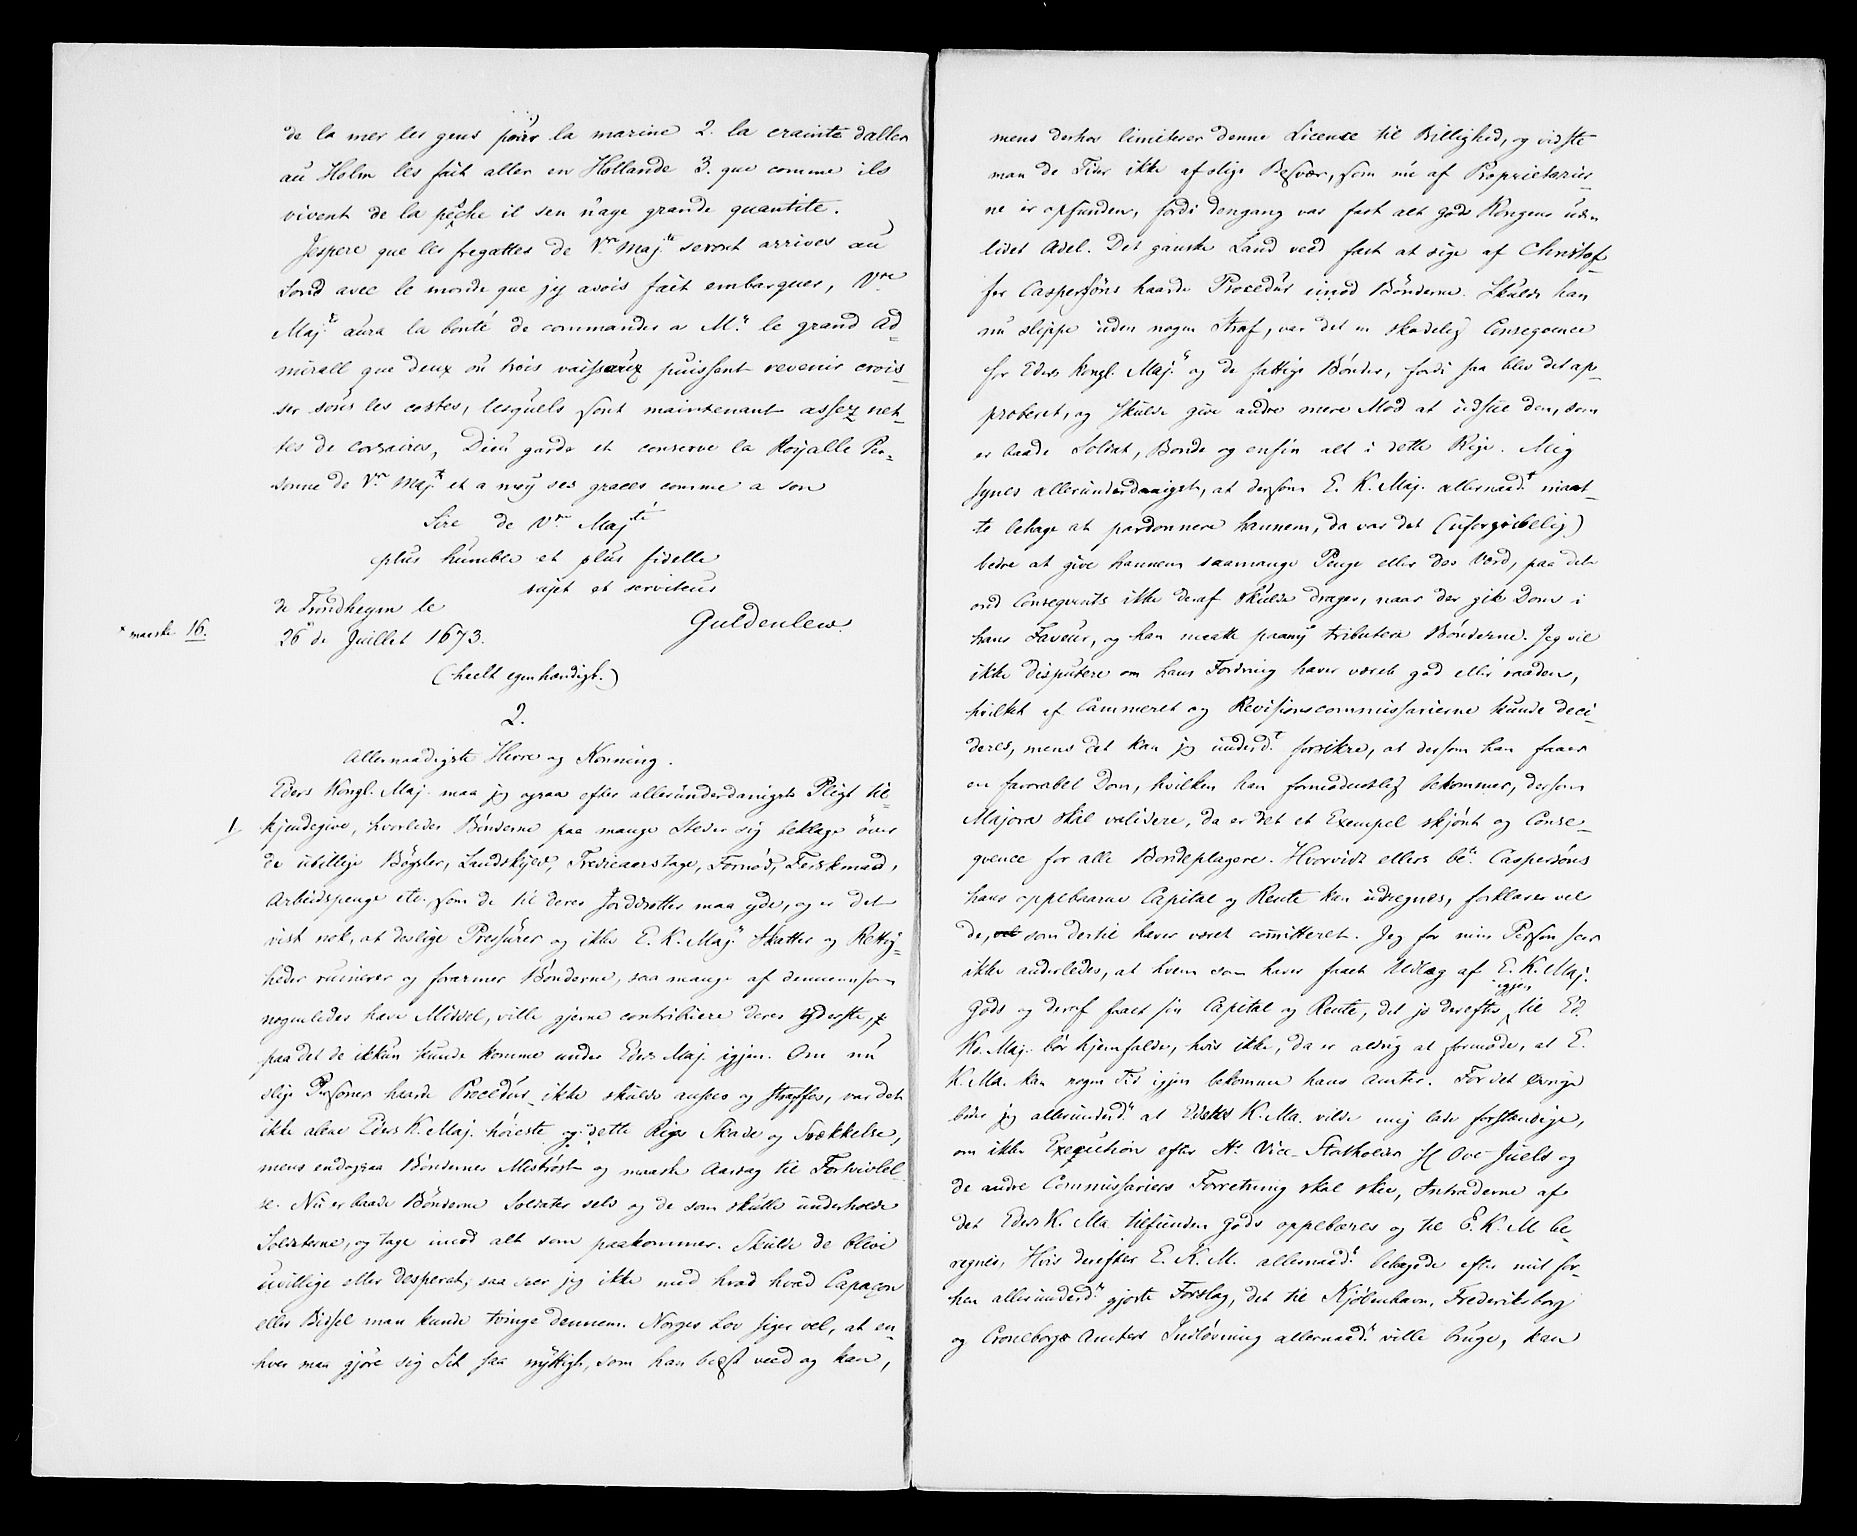 de la mer les gens pour la marine 2. la crainte daller
au Holm les fait aller en Hollande 3. que comme ils
vivent de la pêche il sen nage grande quantite.
Jespere que les fregattes de Vre Majte seront arrives au
Sond avec le monde que jy avois fait embarquer, Vre
Majte aura la bonté de commander a Mr le grand Ad-
mirall que deux ou trois vaisseaux puissent revenir crois-
ser sour les costes, lesquels sont maintenant assez net-
tes de corsaires, Dieu garde et conserve la Royalle Per-
sonne de Vre Majte et a moy ses graces comme a son
Sire de Vre Majté
plus humble et plus fidelle
sujet et serviteur
de Trondheym le
* maaske 16.
26* de Juillet 1673.
Guldenlew.
(heelt egenhændigt.)
2.
Allernaadigste Herre og Konning.
Eders Kongl. Maj. maa jeg ogsaa efter allerunderdanigste Pligt til-
kjendegive, hvorledes Bönderne paa mange Steder sig beklage över
de ubillige Böxler, Landskyld, Trediеaarstage, Fornöd, Ferskmad,
Arbeidspenge etc. som de til deres Jorddrotter maa yde, og er det
vist nok, at deslige Pressurer og ikke E. K. Majs Skatter og Rettig-
heder ruinerer og forarmer Bönderne, saa mange af dennem som
nogenledes have Middel, ville gjerne contribuere deres yderste,
paa det de ikkun kunde komme under Eders Maj. igjen. Om nu
slige Personers haarde Procedur ikke skulde ansees og straffes, var det
ikke alene Eders K. Maj. höieste og dette Riges Skade og Svækkelse,
mens endogsaa Böndernes Miströst og maaske Aarsag til Fortvivlel-
se. Nu er baade Bönderne Soldater selv og de som skulle underholde
Soldaterne, og tage imod alt som paakommer. Skulde de blive
uvillige eller desperat, saa seer jeg ikke med hvad hvad Capaçon
eller Bidsel man kunde tvinge dennem. Norges Lov siger vel, at en-
hver maa gjöre sig Sit saa nyttigt, som han best veed og kan,
mens derhos limiterer denne Licence til Billighed, og vidste
man de Tider ikke af slige Besvær, som nu af Proprietarier-
ne er opfunden, fordi dengang var fast alt Gods Kongens uden
lidet Adel. Det ganske Land veed fast at sige af Christof-
fer Caspersöns haarde Procedur imod Bönderne. Skulde han
nu slippe uden nogen Straf, var det en skadelig Conseqvence
for Eders Kongl. Majs og de fattige Bönder, fordi saa blev det ap-
proberet, og skulde give andre mere Mod at udsue den, som
er baade Soldat, Bonde og enfin alt i dette Rige. Mig
synes allerunderdanigst, at dersom E. K. Maj. allernaadt maat-
te behage at pardonnere hannem, da var det (uforgribelig)
bedre at give hannem saamange Penge eller des Værd, paa det
ond Conseqvents ikke deraf skulde drages, naar der gik Dom i
hans Faveur, og han maatte paany tributere Bönderne. Jeg vil
ikke disputere om hans Fordring haver været god eller raaden,
hvilket af Cammeret og Revisionscommissarierne kunde deci-
deres, mens det kan jeg underdt forsikre, at dersom han faaer
en favorabel Dom, hvilken han formodentlig bekommer, dersom
Majora skal validere, da er det et Exempel skjönt og Conse-
qvence for alle Bondeplagere. Hvorvidt ellers bete Caspersöns
hans oppebaarne Capital og Rente kan udregnes, forklarer vel
de, som dertil haver været committeret. Jeg for min Person seer
ikke anderledes, at hvem som haver faaet Udlæg af E. K. Maj.
Gods og deraf faaet sin Capital og Rente, det jo derefter igjen til Ed.
Ko. Maj. bör hjemfalde, hvis ikke, da er aldrig at formode, at E.
K. Ma. kan nogen Tid igjen bekomme hans Amter. For det övrige
beder jeg allerunderdt at Eders K. Ma. vilde mig lade forstændige,
om ikke Exeqution efter Hr Vice-Statholder Hr Ove Juels og
de andre Commissariers Forretning skal skee, Intraderne af
det Eders K. Ma. tilfunden Gods oppebæres og til E. K. M. be-
regnes. Hvis derefter E. K. M. allernaadt behagede efter mit for-
hen allerunderdt gjorte Forslag, det til Kjöbenhavn, Frederiksborg
og Croneborgs Amters Indlösning allernaadt ville bruge, kan